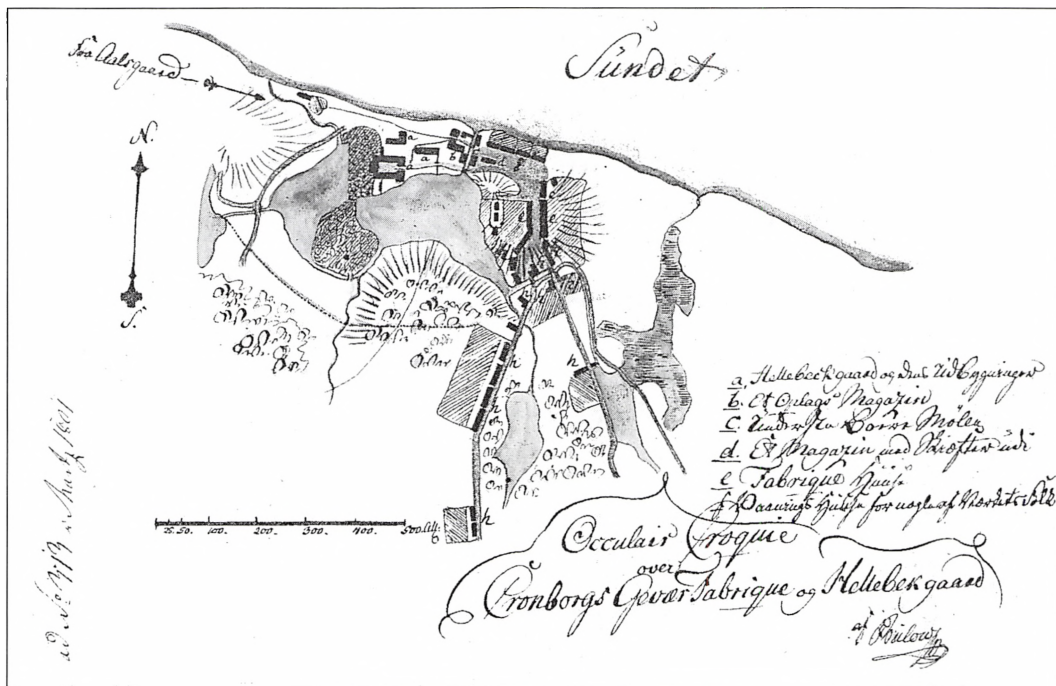 Sündet
Fra Aalsgaard
N.
S.
a b d
e e
h
h
h
h
a. Hellebeckgaard og dens Udbygninger
b. Et Oplags Magazin
c. Underste Boere Mølen
d. Et Magazin med Skiæfter udi
e Fabrique Huuse
f Vaanings Huuse for nogle af Værkets Folk
25. 50. 100. 200. 300. 400. 500
Occulair Croquie
over
Cronborgs Gevær Fabrique og Hellebekgaard
af Bülow